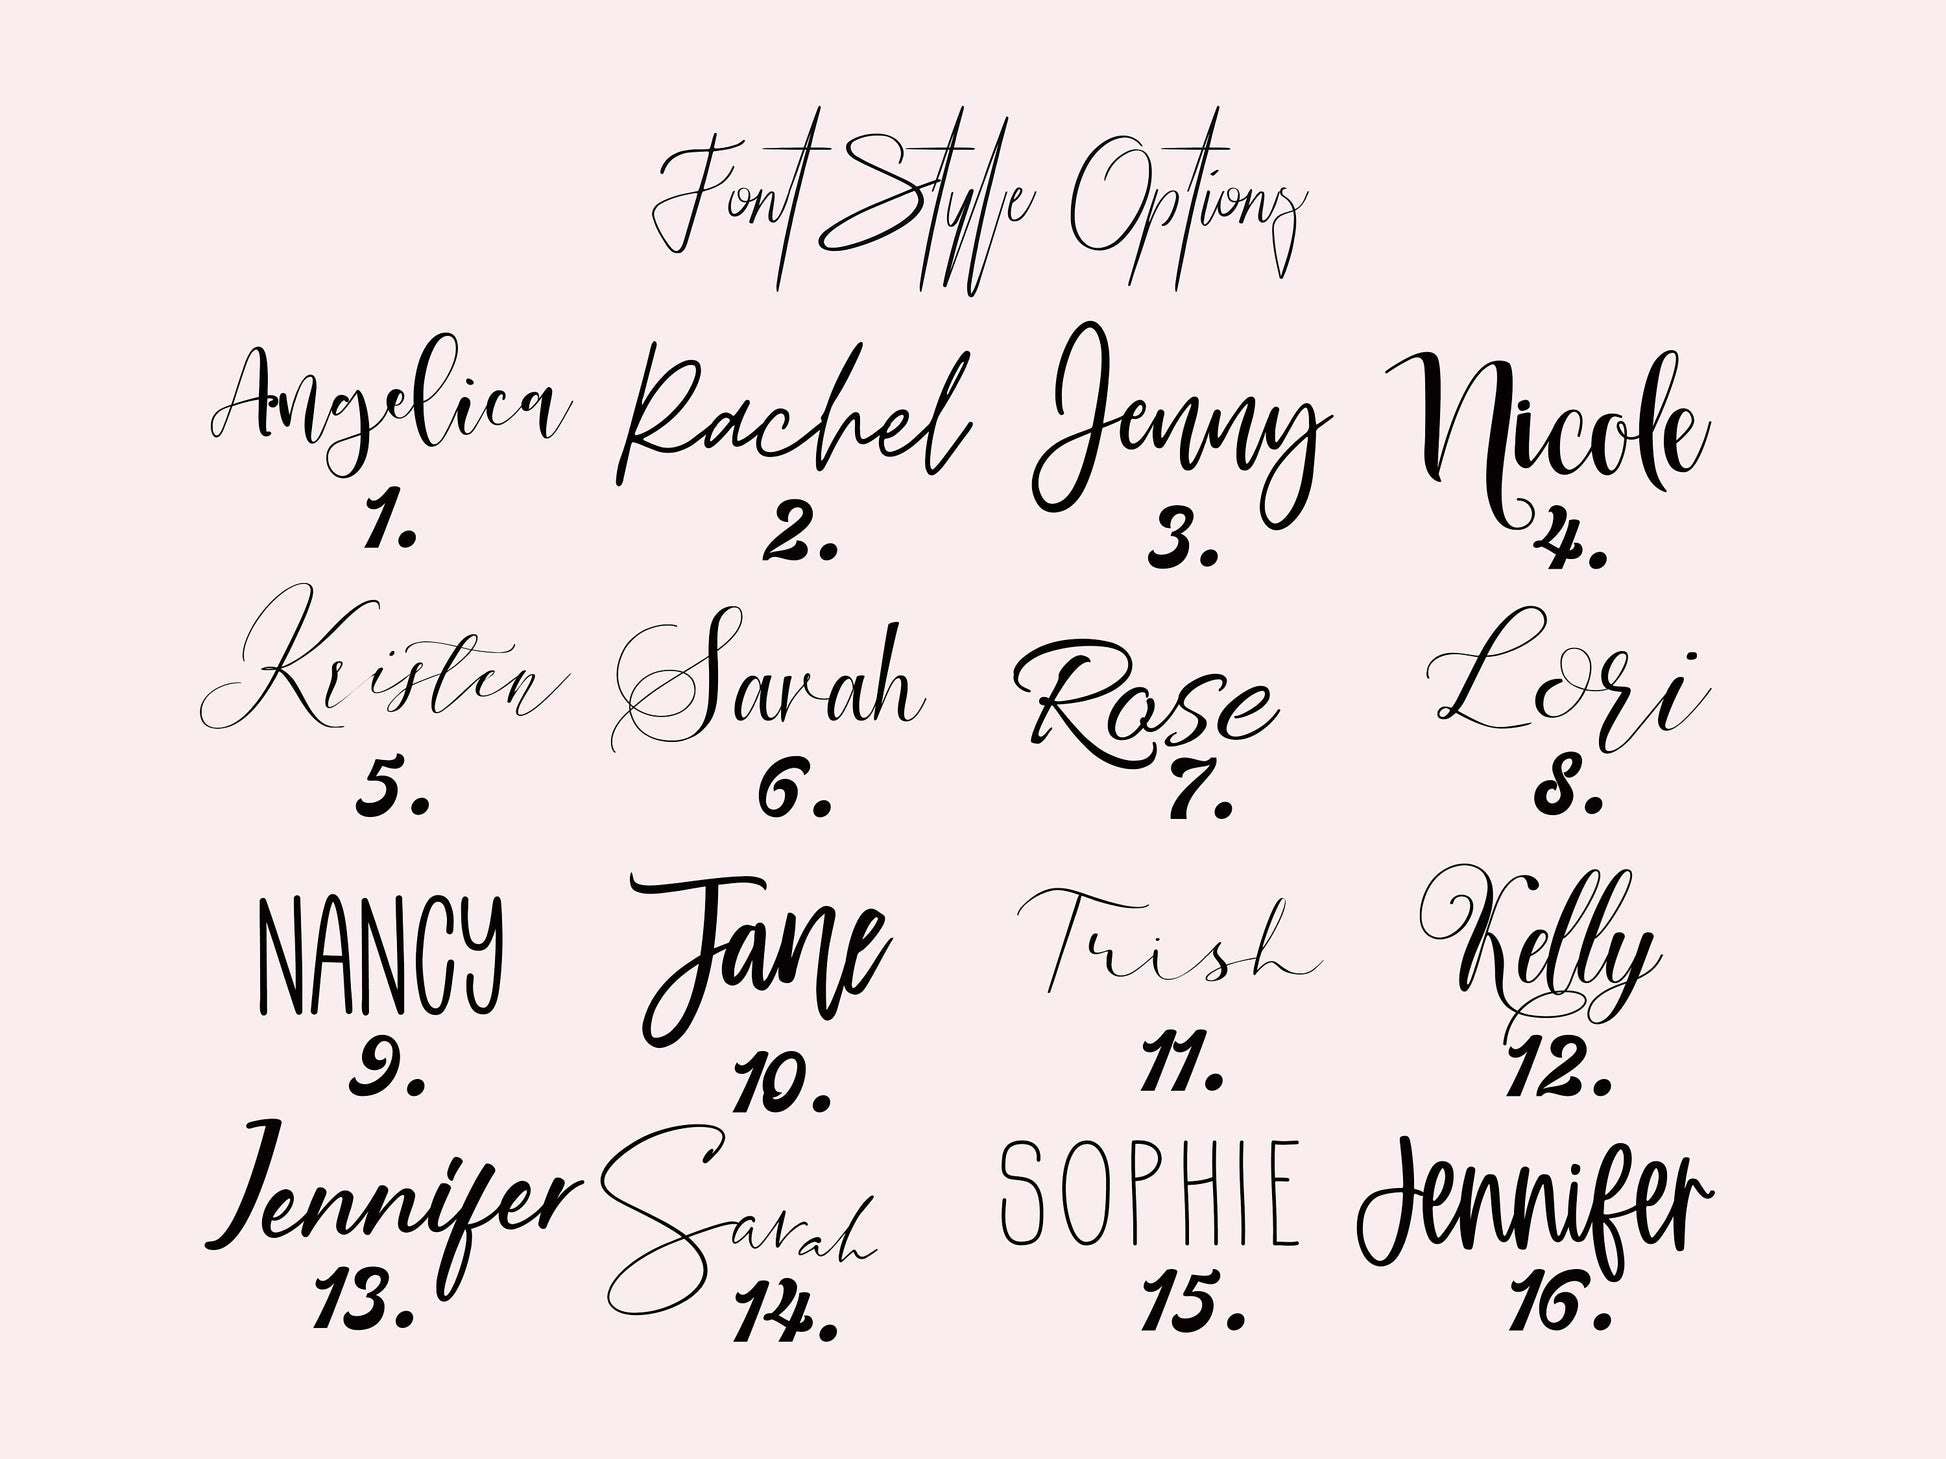 Font Style Options
Angelica Rachel Jenny Nicole
1. 2. 3. 4.
Kristen Sarah Rose Lori
5. 6. 7. 8.
NANCY Jane Trish Kelly
9. 10. 11. 12.
Jennifer Sarah SOPHIE Jennifer
13. 14. 15. 16.